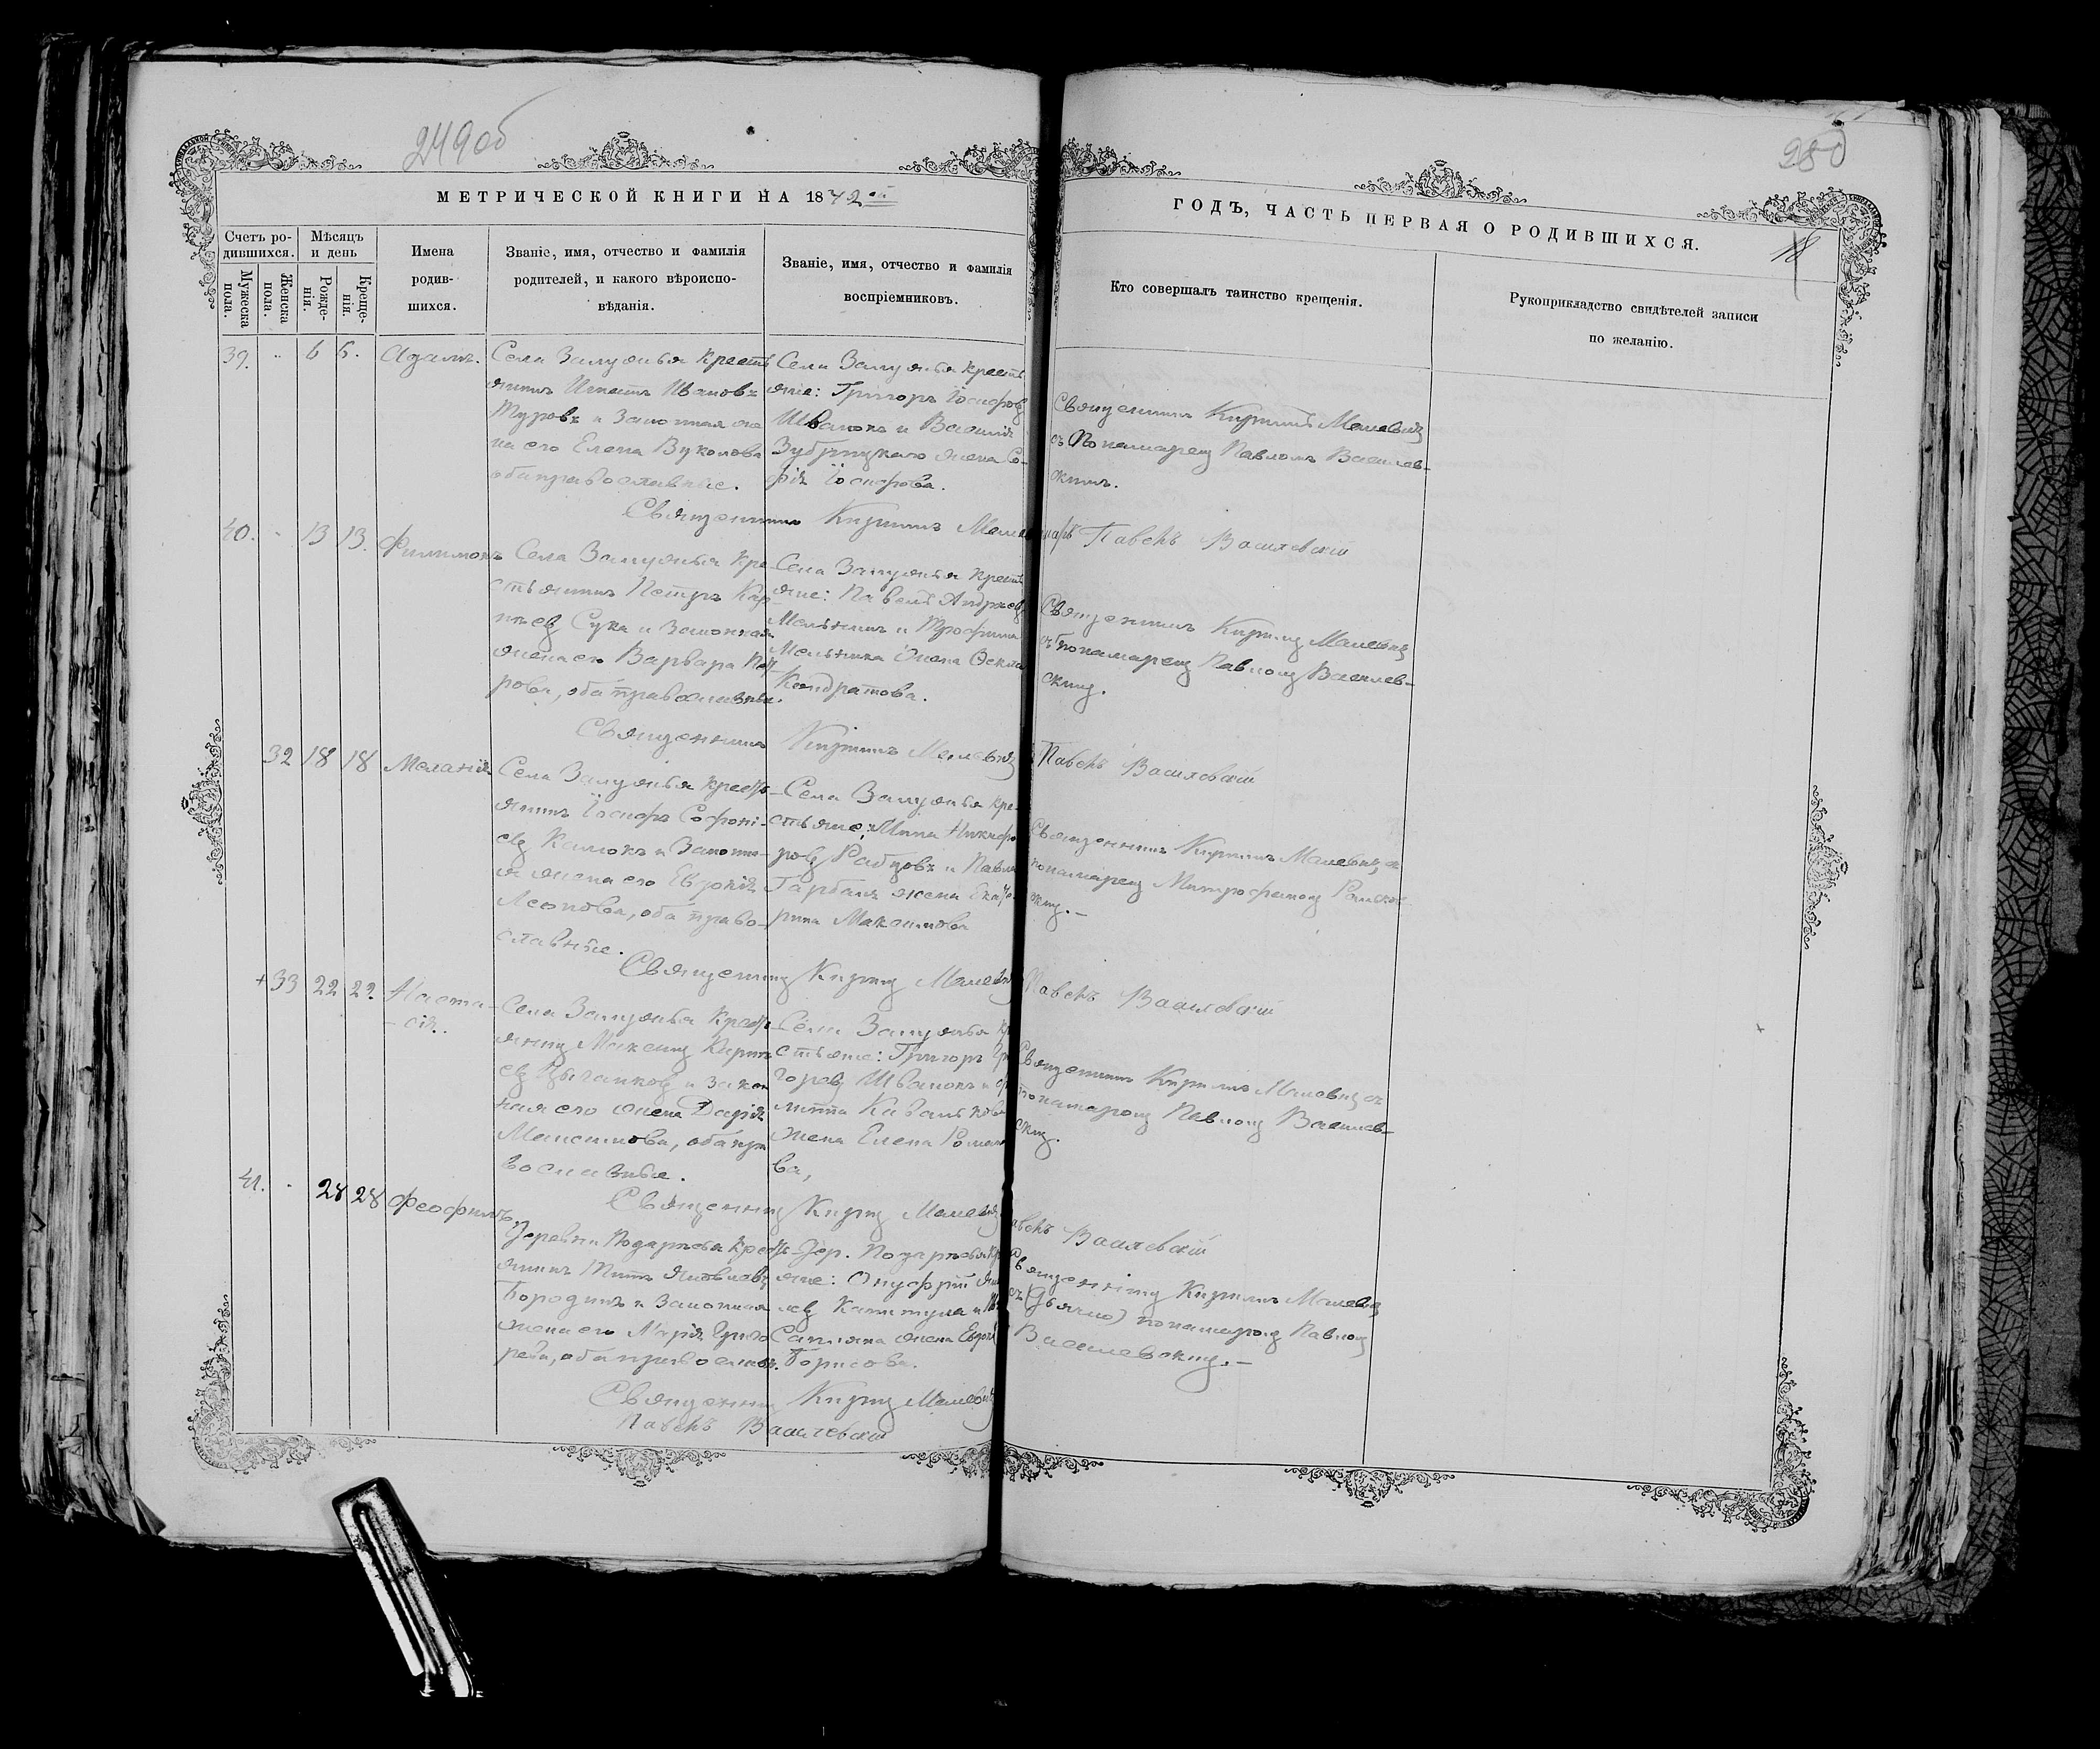 249об
280
МЕТРИЧЕСКОЙ КНИГИ НА 1872ой
ГОДЪ, ЧАСТЬ ПЕРВАЯ О РОДИВШИХСЯ.
18
Счетъ ро-
дившихся.
Мужеска
пола.
Женска
пола.
Мѣсяцъ
и день
Рожде-
нія.
Креще-
нія.
Имена
родив-
шихся.
Званіе, имя, отчество и фамилія
родителей, и какого вѣроиспо-
вѣданія.
Званіе, имя, отчество и фамилія
воспріемниковъ.
Кто совершалъ таинство крещенія.
Рукоприкладство свидѣтелей записи
по желанію.
39. 6 6. Адамъ.
Села Залужья крестъ
янинъ Игнатъ Ивановъ
Туровъ и законная же
на его Елена Вуколова
оба православные.
Села Залужья кресть
яне: Григоръ Іосифовъ
Шванокъ и Василія
Зубрицкаго жена Со-
фія Іосифова.
Священникъ Кириллъ Малевичъ
съ Пономаремъ Павломъ Василев-
скимъ.
Священникъ Кириллъ
Павелъ Василевскій
40. 13 13. Филимонъ
Села Залужья кре-
стьянинъ Петръ Кар-
пиевъ Сука и законная
жена его Варвара Пет
рова, оба православные.
Села Залужья кресть
яне: Павелъ Андреевъ
Мельникъ и Трофима
Мельника жена Ѳекла
Кондратова.
Священникъ Кириллъ Малевичъ
съ пономаремъ Павломъ Василев-
скимъ.
Священникъ Кириллъ Малевичъ
Павелъ Василевскій
32 18 18 Меланія
Села Залужья крестъ-
янинъ Іосифъ Софоні-
евъ Калюкъ и законна-
я жена его Евдокія
Леонова, оба право-
славные.
Села Залужья кре-
стьяне: Мина Никифо
ровъ Рабцовъ и Павла
Гарбаль жена Екате-
рина Максимова
Священникъ Кириллъ Малевичъ съ
пономаремъ Митрофаномъ
скимъ.-
Священникъ Кириллъ Малевичъ
Павелъ Василевскій
+33 22 22. Наста-
-сія.
Села Залужья крестъ-
янинъ Максимъ Кирил
евъ Цыганковъ и закон
ная его жена Дарія
Максимова, оба пра
вославные.
Села Залужья кр
стьяне: Григоръ Гри
горовъ Шванокъ и
жена Елена Романо
ва,
Священникъ Кириллъ Малевичъ съ
пономаремъ Павломъ Василев-
скимъ.
Священникъ Кириллъ Малевичъ
Павелъ Василевскій
41. 28 28 Феофилъ.
Деревни Подарѣсья крестъ-
янинъ Титъ Яковлевъ
Бородинъ и законная
жена его Марія Григо
рева, оба православн.
Дер. Подарѣсья кр
яне: Онуфрій Яков
левъ Капитула и
Сапляка жена Евдокія
Борисова.
Священникъ Кириллъ Малевичъ
съ (дьячко) пономаремъ Павломъ
Василевскимъ.-
Священникъ Кириллъ Малевичъ
Павелъ Василевскій